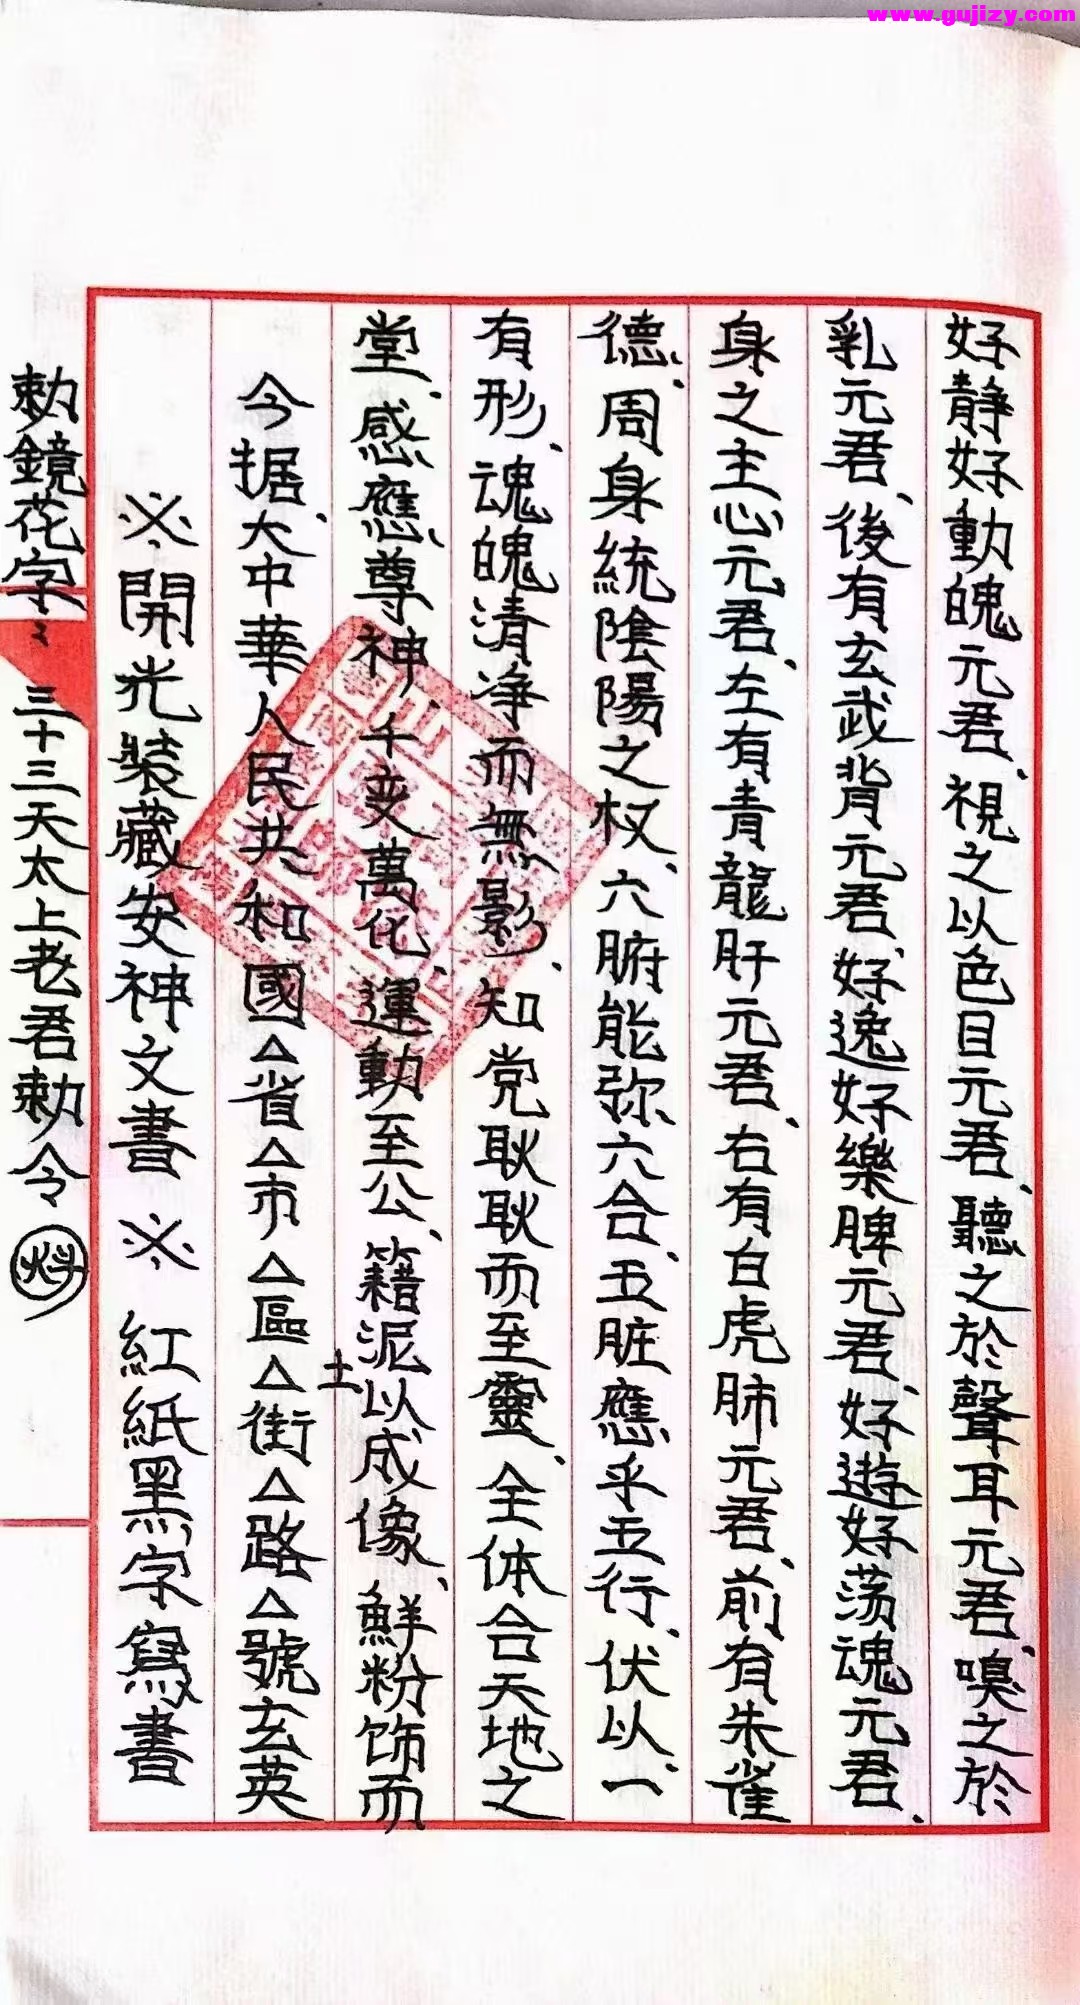 www.gujizy.com
好静好動魄元君、視之以色目元君、聽之於聲耳元君、嗅之於
乳元君、後有玄武背元君、好逸好樂脾元君、好遊好荡魂元君、
身之主心元君、左有青龍肝元君、右有白虎肺元君、前有朱雀
德、周身統陰陽之权、六腑能弥六合、五脏應乎五行、伏以、一
有形、魂魄清净而無影、知党耿耿而至靈、全体合天地之
堂、感應尊神、千变萬化、運動至公、籍泥土以成像、鮮粉饰而
今据、大中華人民共和國△省△市△區△街△路△號玄英
※開光装藏安神文書※ 紅紙黑字寫書
勅鏡花字: 三十三天太上老君勅令